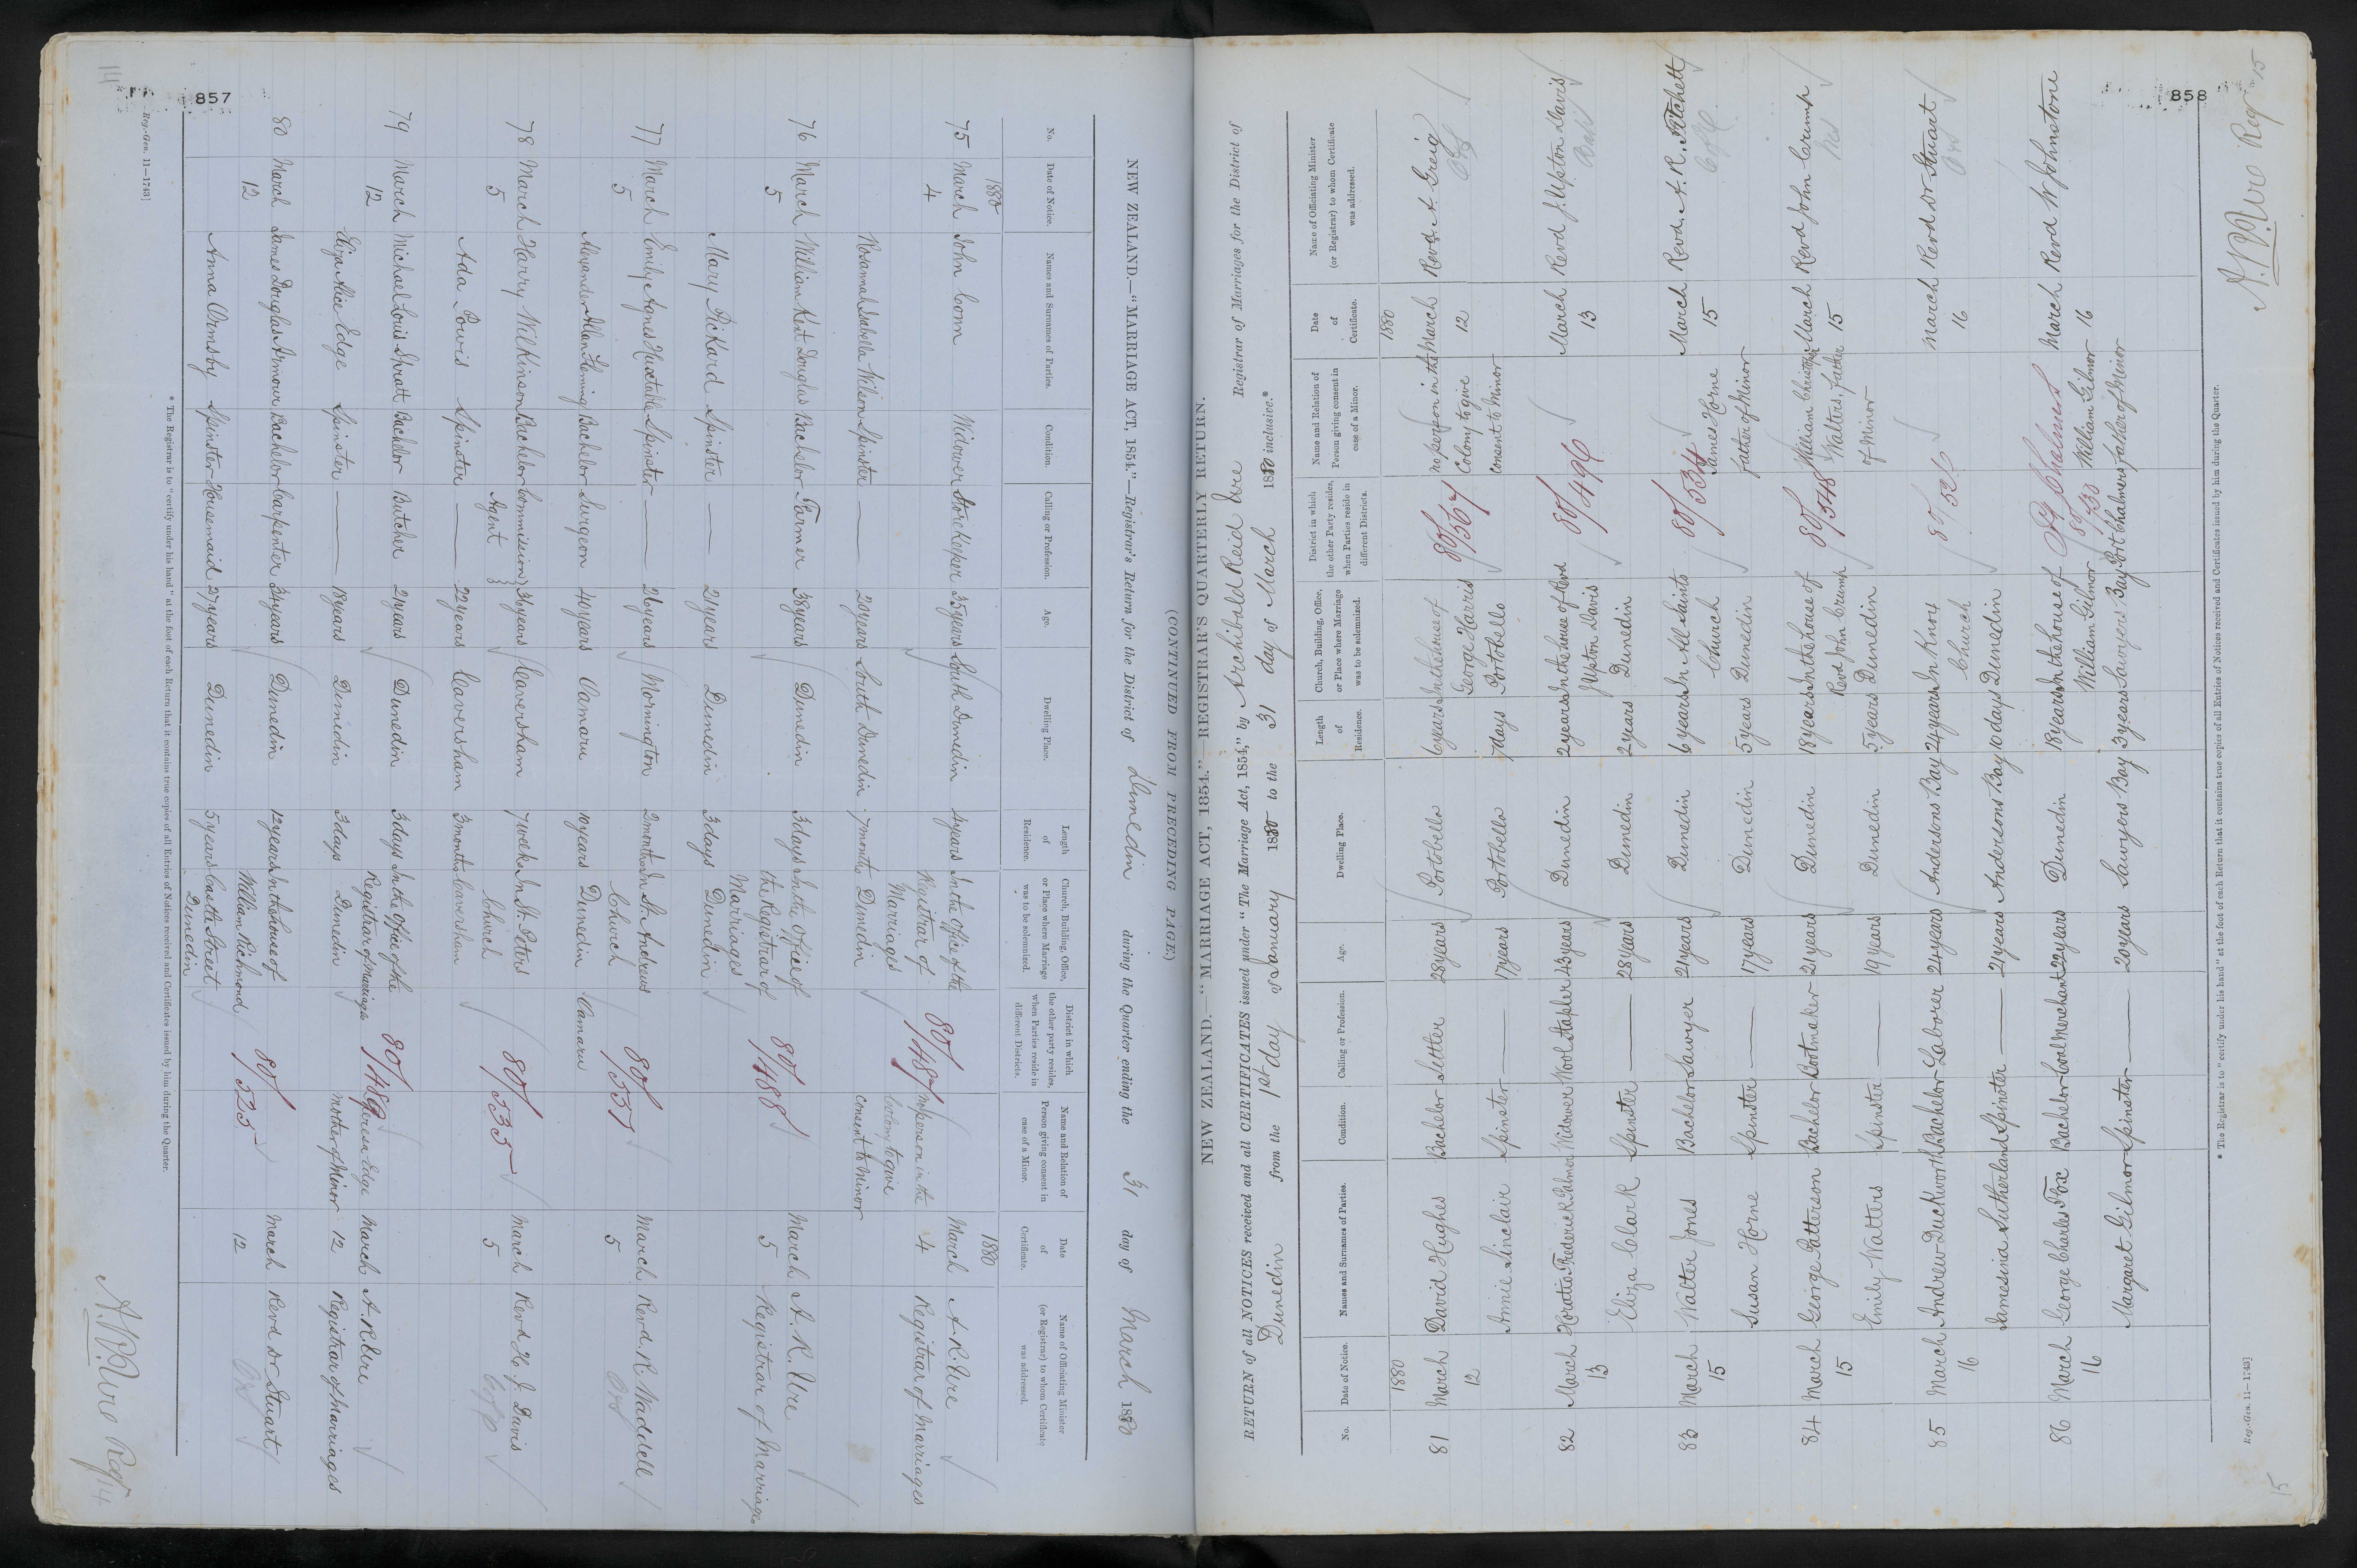 857
14
(CONTINUED FROM PRECEDING PAGE)
NEW ZEALAND.—"MARRIAGE ACT, 1854."—Registrar's Return for the District of Dunedin during the Quarter ending the 31 day of March 1880
No. Date of Notice. Names and Surnames of Parties. Condition. Calling or Profession. Age. Dwelling Place. Length of Residence. Church, Building, Office, or Place where Marriage was to be solemnized. District in which the other party resides, when Parties reside in different Districts. Name and Relation of Person giving consent in case of a Minor. Date of Certificate. Name of Officiating Minister (or Registrar) to whom Certificate was addressed.
1880 1880
75 March 4 John Conn Widower Storekeeper 35 years South Dunedin 4 years In the Office of the Registrar of Marriages Dunedin 80/487 no person in the Colony to give consent to Minor March 4 A. R. Ure Registrar of Marriages
Rosannah Isabella Wilson Spinster — 20 years South Dunedin 7 months
76 March 5 William Kent Douglas Bachelor Farmer 38 years Dunedin 3 days In the Office of the Registrar of Marriages Dunedin 80/488 March 5 A. R. Ure Registrar of Marriages
Mary Pickard Spinster — 21 years Dunedin 3 days
77 March 5 Emily Agnes Huxtable Spinster — 26 years Mornington 2 months In St. Andrews Church Dunedin 80/531 March 5 Revd. R. Waddell
Alexander Allan Fleming Bachelor Surgeon 40 years Oamaru 10 years Oamaru
78 March 5 Harry Wilkinson Bachelor Commission Agent 36 years Caversham 7 weeks In St. Peters Church Caversham 80/535 March 5 Revd H. J. Davis
Ada Powis Spinster — 22 years Caversham 3 months
79 March 12 Michael Louis Spratt Bachelor Butcher 21 years Dunedin 3 days In the Office of the Registrar of Marriages Dunedin 80/489 Teresa Edge mother of Minor March 12 A. R. Ure Registrar of Marriages
Eliza Alice Edge Spinster — 18 years Dunedin 3 days
80 March 12 James Douglas Armour Bachelor Carpenter 34 years Dunedin 12 years In the house of William Richmond Castle Street Dunedin 80/525 March 12 Revd Dr Stuart
Anna Ormsby Spinster Housemaid 27 years Dunedin 5 years
* The Registrar is to "certify under his hand" at the foot of each Return that it contains true copies of all Entries of Notices received and Certificates issued by him during the Quarter.
Reg.-Gen. 11—1743]
A. R. Ure Reg
14
858
15
NEW ZEALAND.—"MARRIAGE ACT, 1854."—REGISTRAR'S QUARTERLY RETURN.
RETURN of all NOTICES received and all CERTIFICATES issued under "The Marriage Act, 1854," by Archibald Reid Ure Registrar of Marriages for the District of
Dunedin from the 1st day of January 1880 to the 31 day of March 1880 inclusive.*
No. Date of Notice. Names and Surnames of Parties. Condition. Calling or Profession. Age. Dwelling Place. Length of Residence. Church, Building, Office, or Place where Marriage was to be solemnized. District in which the other Party resides, when Parties reside in different Districts. Name and Relation of Person giving consent in case of a Minor. Date of Certificate. Name of Officiating Minister (or Registrar) to whom Certificate was addressed.
1880 1880
81 March 12 David Hughes Bachelor Settler 28 years Portobello 6 years In the house of George Harris Portobello 80/567 no person in the Colony to give consent to Minor March 12 Revd. A. Greig
Annie Sinclair Spinster — 17 years Portobello days
82 March 13 Horatio Frederick Palmer Widower Wool stapler 43 years Dunedin 2 years In the house of Revd J Upton Davis Dunedin 80/496 March 13 Revd J. Upton Davis
Eliza Clark Spinster — 28 years Dunedin 2 years
83 March 15 Walter Jones Bachelor Sawyer 21 years Dunedin 6 years In All Saints Church Dunedin 80/534 James Horne father of Minor March 15 Revd. A. R. Fitchett
Susan Horne Spinster — 17 years Dunedin 5 years
84 March 15 George Patterson Bachelor Bootmaker 21 years Dunedin 18 years In the house of Revd John Crump Dunedin 80/548 William Christopher Walters, father of Minor March 15 Revd John Crump
Emily Walters Spinster — 19 years Dunedin 5 years
85 March 16 Andrew Duckworth Bachelor Laborer 24 years Andersons Bay 24 years In Knox Church Dunedin 80/526 March 16 Revd Dr Stuart
Jamesina Sutherland Spinster — 21 years Andersons Bay 10 days
86 March 16 George Charles Fox Bachelor Coal Merchant 22 years Dunedin 18 years In the house of William Gilmor Sawyers Bay Pt Chalmers 80/430 Port Chalmers William Gilmor father of Minor March 16 Revd W Johnstone
Margaret Gilmor Spinster — 20 years Sawyers Bay 3 years
* The Registrar is to "certify under his hand" at the foot of each Return that it contains true copies of all Entries of Notices received and Certificates issued by him during the Quarter.
Reg.-Gen. 11—1743]
A. R. Ure Reg
15